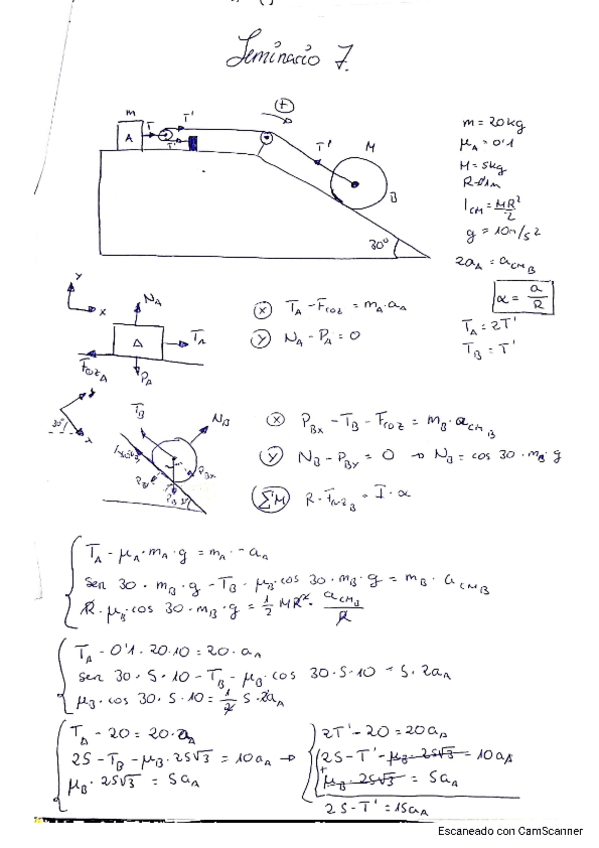 Seminario 7.
m
A
T
T'
T'
(+)
T'
M
B
30°
m = 20kg
μA = 0'1
M = 5kg
R=0'1m
ICM = MR²/2
g = 10m/s²
2aA = aCMB
α = a/R
TA = 2T'
TB = T'
y
x
NA
A
TA
FrozA
PA
(x) TA - Froz = mA·aA
(y) NA - PA = 0
y
x
30°
TB
NB
FrozB
PBx
PBy
PB
(x) PBx - TB - Froz = mB · aCMB
(y) NB - PBy = 0 → NB = cos 30 · mB · g
(ΣM) R · FrozB = I · α
TA - μA · mA · g = mA · aA
sen 30 · mB · g - TB - μB · cos 30 · mB · g = mB · aCMB
R · μB · cos 30 · mB · g = 1/2 MR² · aCMB/R
TA - 0'1 · 20 · 10 = 20 · aA
sen 30 · 5 · 10 - TB - μB · cos 30 · 5 · 10 = 5 · 2aA
μB · cos 30 · 5 · 10 = 1/2 5 · 2aA
TA - 20 = 20 · aA
25 - TB - μB · 25√3 = 10aA →
μB · 25√3 = 5aA
2T' - 20 = 20aA
25 - T' - μB · 25√3 = 10aA
+ μB · 25√3 = 5aA
25 - T' = 15aA
Escaneado con CamScanner